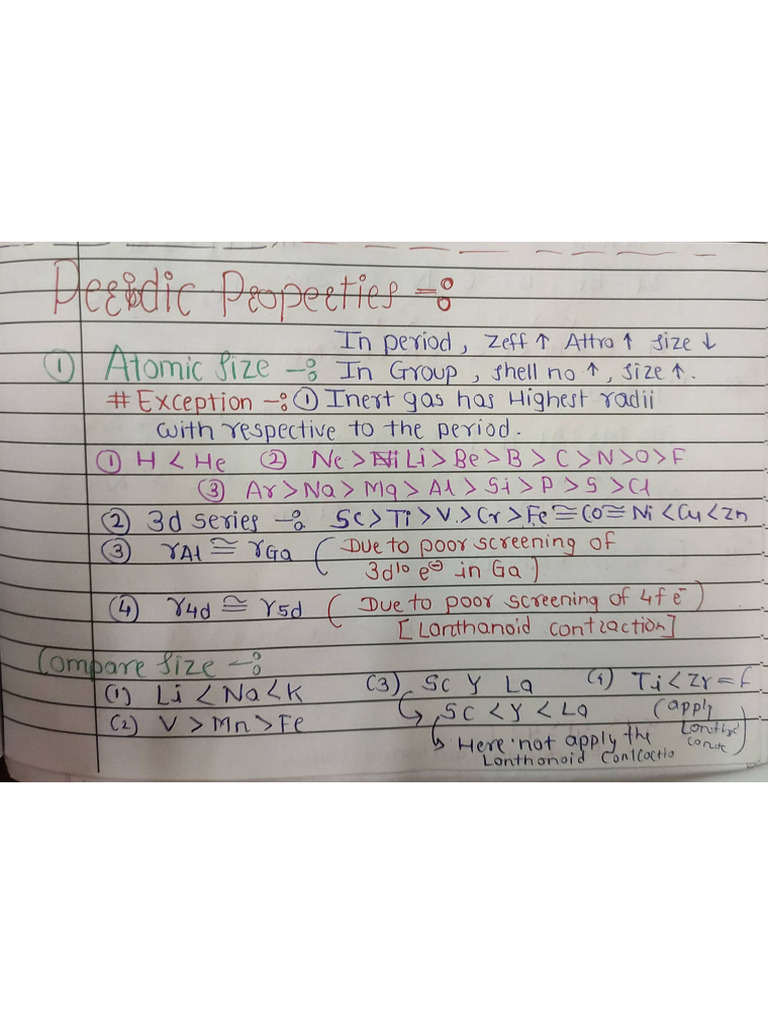 Periodic Properties -:
In period, Zeff ↑ Attra ↑ size ↓
① Atomic Size -: In Group, shell no ↑, size ↑.
# Exception -: ① Inert gas has Highest radii
with respective to the period.
① H < He ② Ne > Li > Be > B > C > N > O > F
③ Ar > Na > Mg > Al > Si > P > S > Cl
② 3d series -: Sc > Ti > V > Cr > Fe ≅ Co ≅ Ni < Cu < Zn
③ rAl ≅ rGa (Due to poor screening of
3d¹⁰ e⊖ in Ga)
④ r4d ≅ r5d (Due to poor screening of 4f e⁻)
[Lonthanoid contraction]
Compare Size -:
(1) Li < Na < K (3) Sc Y La (4) Ti < Zr =
(2) V > Mn > Fe Sc < Y < La (apply
Here not apply the
Lonthonoid